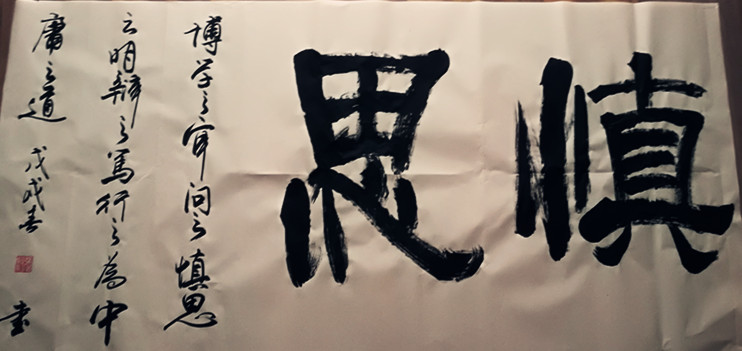 慎思
博学之审问之慎思
之明辨之笃行之為中
庸之道 戊戌春 书